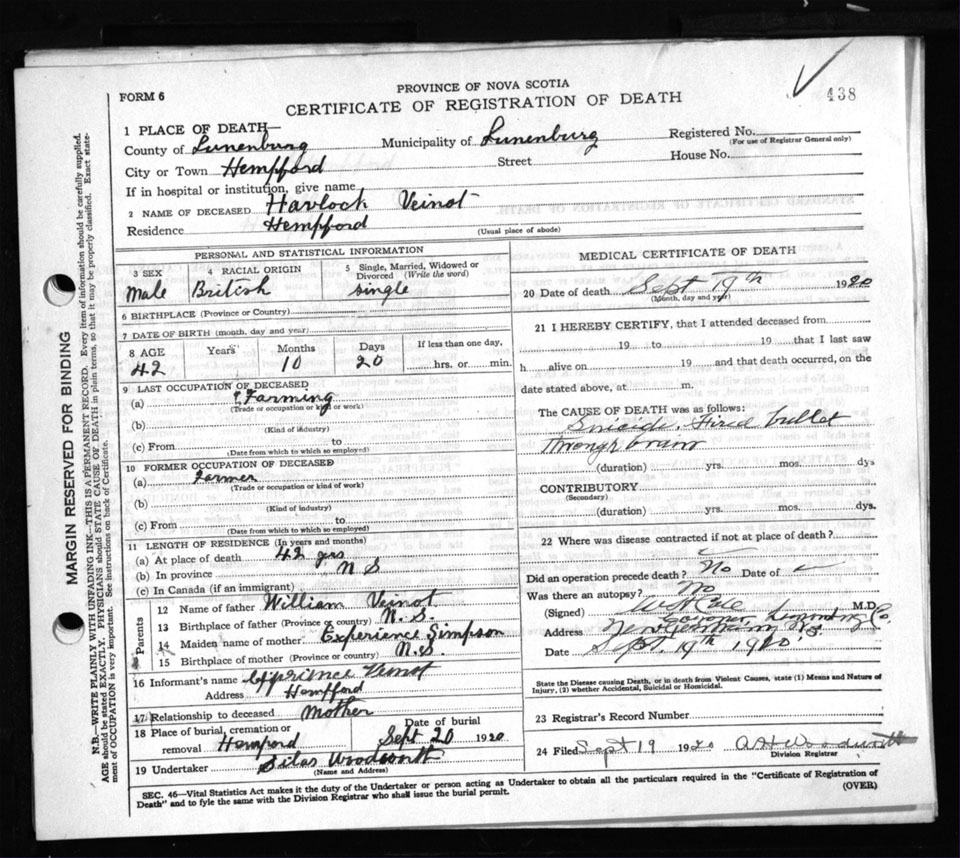 438
FORM 6
PROVINCE OF NOVA SCOTIA
CERTIFICATE OF REGISTRATION OF DEATH
1 PLACE OF DEATH—
County of Lunenburg Municipality of Lunenburg Registered No.
(For use of Registrar General only)
City or Town Hempford Street House No.
If in hospital or institution, give name
2 NAME OF DECEASED Havlock Veinot
Residence Hempford
(Usual place of abode)
PERSONAL AND STATISTICAL INFORMATION
3 SEX 4 RACIAL ORIGIN 5 Single, Married, Widowed or Divorced (Write the word)
Male British single
6 BIRTHPLACE (Province or Country)
7 DATE OF BIRTH (month, day and year)
8 AGE Years Months Days If less than one day,
42 10 20 hrs. or min.
9 LAST OCCUPATION OF DECEASED
(a) Farming
(Trade or occupation or kind of work)
(b)
(Kind of industry)
(c) From to
(Date from which to which so employed)
10 FORMER OCCUPATION OF DECEASED
(a) Farmer
(Trade or occupation or kind of work)
(b)
(Kind of industry)
(c) From to
(Date from which to which so employed)
11 LENGTH OF RESIDENCE (In years and months)
(a) At place of death 42 yrs
(b) In province N S
(c) In Canada (if an immigrant)
Parents
12 Name of father William Veinot
13 Birthplace of father (Province or country) N.S.
14 Maiden name of mother Experience Simpson
15 Birthplace of mother (Province or country) N.S.
16 Informant's name Veinot
Address Hempford
17 Relationship to deceased Mother
18 Place of burial, cremation or removal Hemford Date of burial Sept 20 1920
19 Undertaker Silas Woodworth
(Name and Address)
MEDICAL CERTIFICATE OF DEATH
20 Date of death Sept 19th 1920
(Month, day and year)
21 I HEREBY CERTIFY, that I attended deceased from
19 to 19 that I last saw
h alive on 19 and that death occurred, on the
date stated above, at m.
The CAUSE OF DEATH was as follows:
Suicide. Fired bullet
through brain
(duration) yrs. mos. dys
CONTRIBUTORY
(Secondary)
(duration) yrs. mos. dys.
22 Where was disease contracted if not at place of death?
Did an operation precede death? No Date of
Was there an autopsy? No
(Signed) M.D.
Coroner Co.
Address New Germany N.S.
Date Sept. 19th 1920
State the Disease causing Death, or in death from Violent Causes, state (1) Means and Nature of
Injury, (2) whether Accidental, Suicidal or Homicidal.
23 Registrar's Record Number
24 Filed Sept 19 1920
Division Registrar
SEC. 46—Vital Statistics Act makes it the duty of the Undertaker or person acting as Undertaker to obtain all the particulars required in the "Certificate of Registration of
Death" and to fyle the same with the Division Registrar who shall issue the burial permit. (OVER)
MARGIN RESERVED FOR BINDING
N.B.—WRITE PLAINLY WITH UNFADING INK—THIS IS A PERMANENT RECORD. Every item of information should be carefully supplied.
AGE should be stated EXACTLY. PHYSICIANS should STATE CAUSE OF DEATH in plain terms, so that it may be properly classified. Exact state-
ment of OCCUPATION is very important. See instructions on back of Certificate.